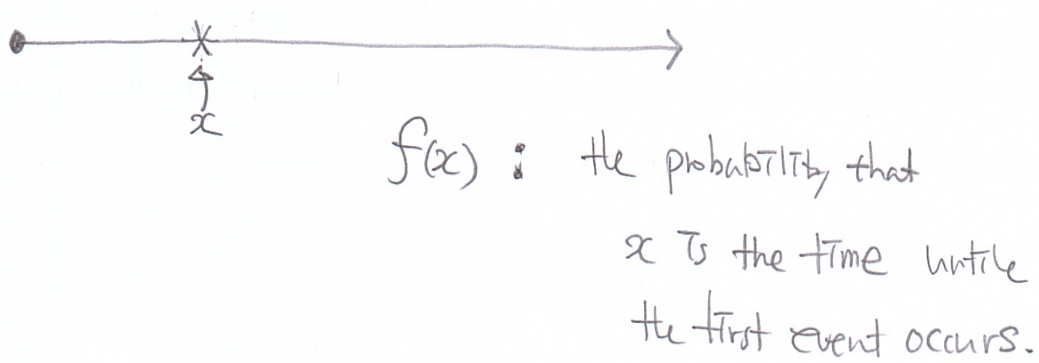 x
f(x) : the probability that
x is the time untile
the first event occurs.